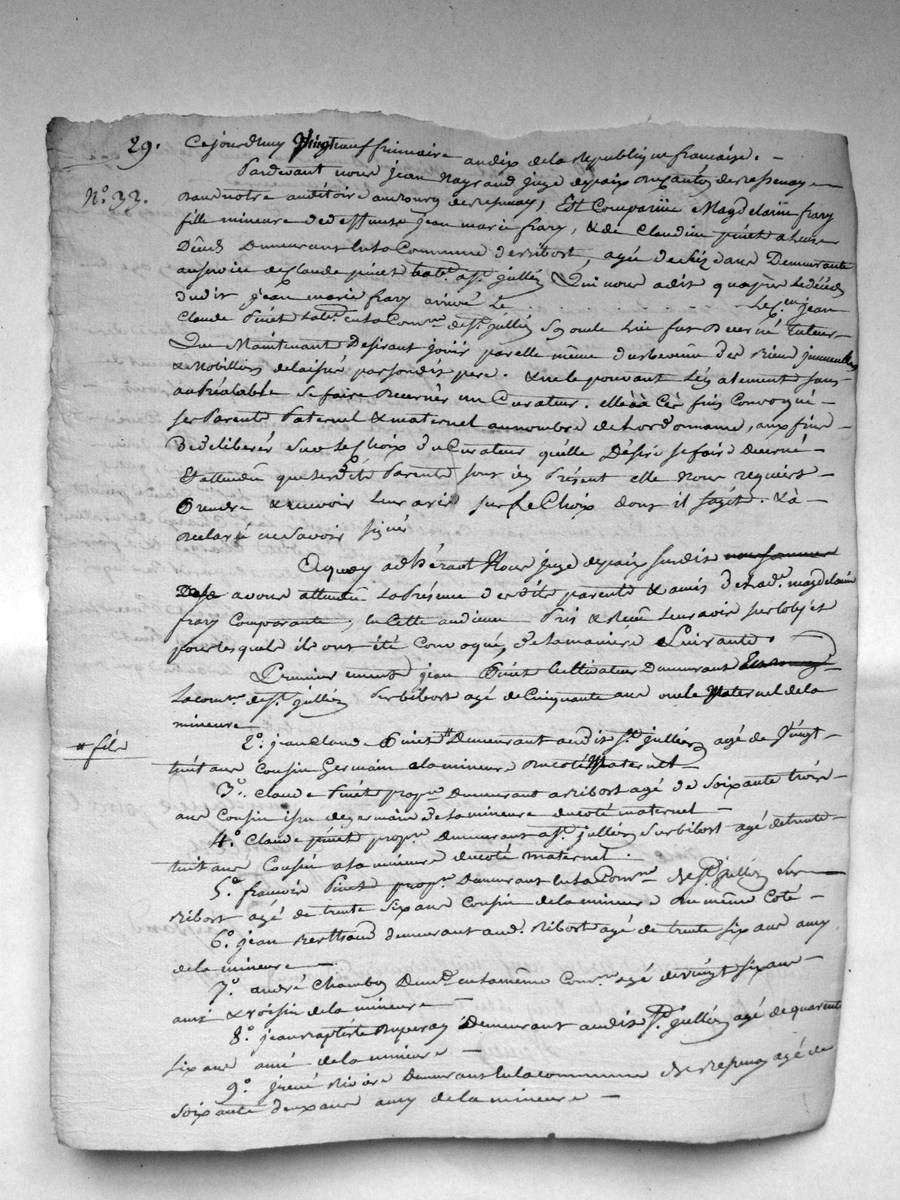 29. Cejourdhuy Vingt neuf frimaire an dix de la Republique francaise. -
Pardevant nous jean juge de paix du canton de
N.° 33. dans notre auditoire au bourg de Est Comparüe Magdelaine frary
fille mineure de deffunts jean marie frary, & de Claudine pinet a leurs
Décés Demeurants en la Commune de ribost, agée de dix ans Demeurante
au service de Claude pinet hab.t a S.t jullien Qui nous a dit qu'après le décés
dudit jean marie frary arrivé Le . . . . . . . . Le C.en jean
Claude Pinet hab.t en la Com.ne de S.t jullien Son oncle Lui fut Decerné tuteur
Que Maintenant Desirant jouir par elle même du revenu des Biens immeubles
& Mobiliers delaissés par son dit pere. & ne le pouvant Légalement sans
au préalable Se faire Decerner un Curateur. elle a à Cés fins Convoqué
ses Parents Paternel & maternel au nombre de Lordonnance, aux fins
De deliberer Sur le Choix du Curateur quelle Désire se faire Decerné
Et attendu que sesdits Parents sont icy Présent elle Nous requiert
Prendre & recevoir Leur avis sur Le Choix dont il s'agit. & a
declaré ne Savoir signer
A quoy adhérant Nous juge de paix susdit
avons attendu La Présence desdits parents & amis de Lad.e magdelaine
frary Comparante, en Cette audience Pris & Reçu Leur avis sur lobjet
pour lequel ils ont été Convoqués, de la maniere Suivante.
Premierement jean Pinet Cultivateur Demeurant
La com.ne de S.t jullien Sur bibost agé de Cinquante ans oncle Maternel de la
mineure
# fils 2.° jean Claude Pinet # Demeurant audit S.t jullien agé de Vingt
huit ans Cousin Germain a la mineure du coté Maternel -
3.° Claude Pinet prop.re Demeurant a Ribost agé de Soixante treize
ans Cousin issu de germain de la mineure du coté maternel -
4.° Claude pinet prop.re Demeurant a S.t jullien Sur bibost agé de trente
huit ans Cousin a la mineure du coté maternel.
5.° francois Pinet prop.re Demeurant en la Com.ne de S.t jullien Sur
Ribost agé de trente Six ans Cousin de la mineure du même Coté -
6.° jean Berthaud demeurant aud. Ribost agé de trente six ans amy
de la mineure -
7.° andré Chambe Dem.t en la même Com.ne agé de vingt six ans
ami & voisin de la mineure -
8.° jean Baptiste Demeurant audit S.t jullien agé de quarente
six ans ami de la mineure -
9.° Riviere Demeurant en la commune de agé de
Soixante deux ans amy de la mineure -